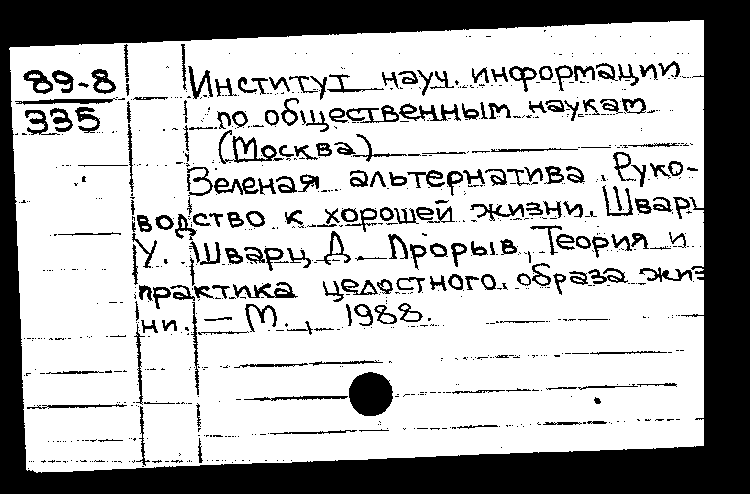 89-8
335
Институт науч. информации
по общественным наукам
(Москва)
Зеленая альтернатива. Руко-
водство к хорошей жизни. Шварц
У. Шварц Д. Прорыв, Теория и
практика целостного. образа жиз
ни. — М., 1988.